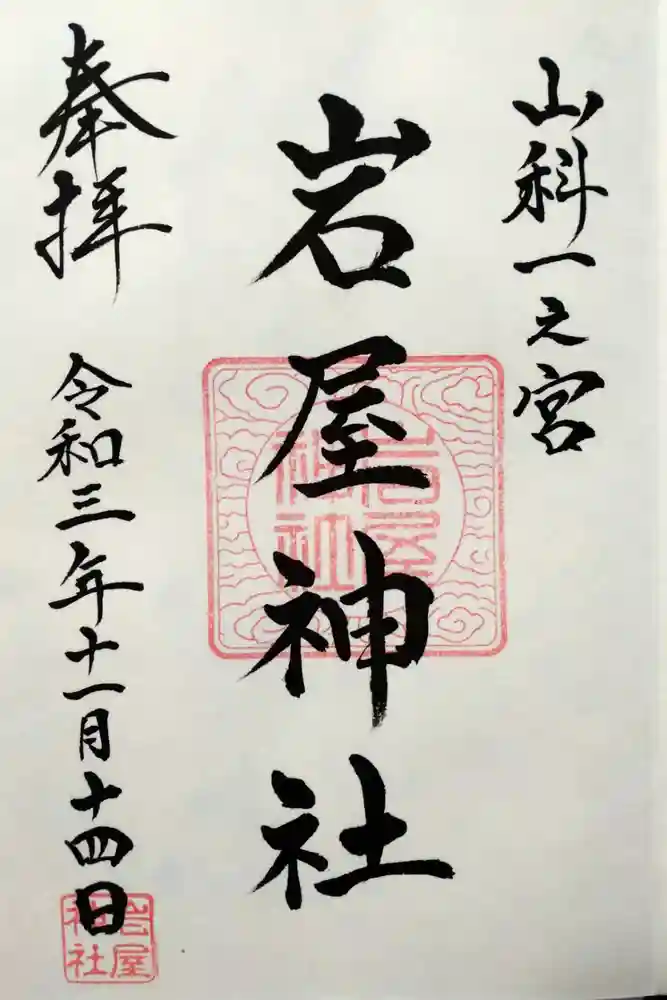 山科一之宮
岩屋神社
奉拝
令和三年十一月十四日
岩屋
神社
岩屋
神社